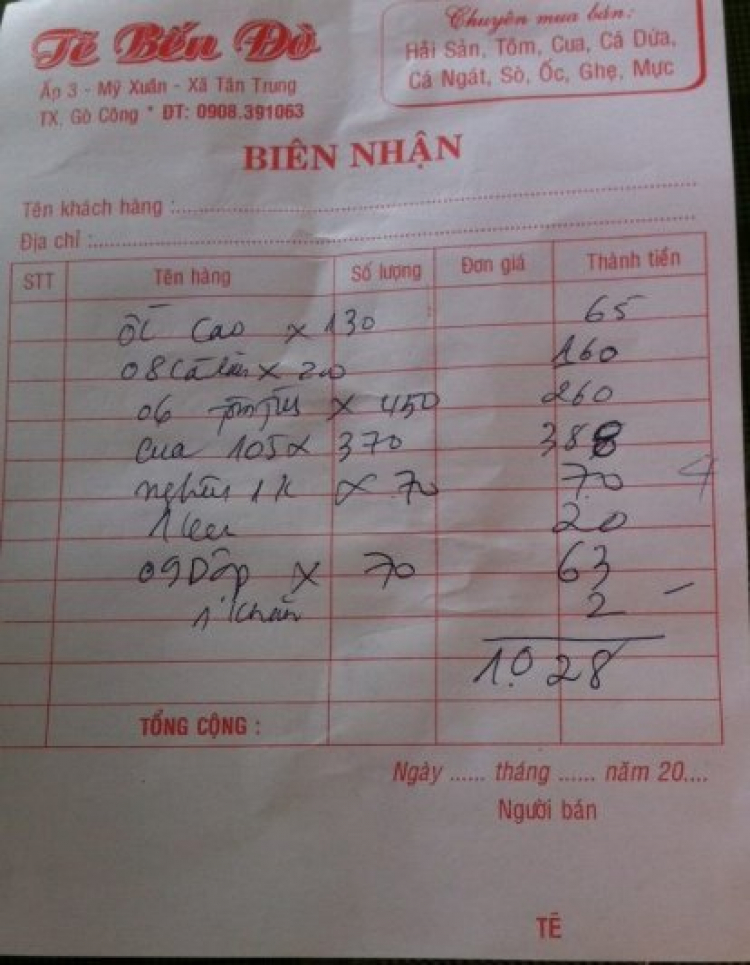 Tẽ Bến Đò
Ấp 3 - Mỹ Xuân - Xã Tân Trung
TX. Gò Công * ĐT: 0908.391063
Chuyên mua bán:
Hải Sản, Tôm, Cua, Cá Dứa,
Cá Ngát, Sò, Ốc, Ghẹ, Mực
BIÊN NHẬN
Tên khách hàng :
Địa chỉ :
STT Tên hàng Số lượng Đơn giá Thành tiền
ốc cao x 130 65
08 x 200 160
06 x 450 260
Cua 105 x 370 388
nghêu 1k x 70 70
1 20
09 Dộp x 70 63
1 khăn 2
1.028
TỔNG CỘNG :
Ngày ...... tháng ...... năm 20....
Người bán
TẼ